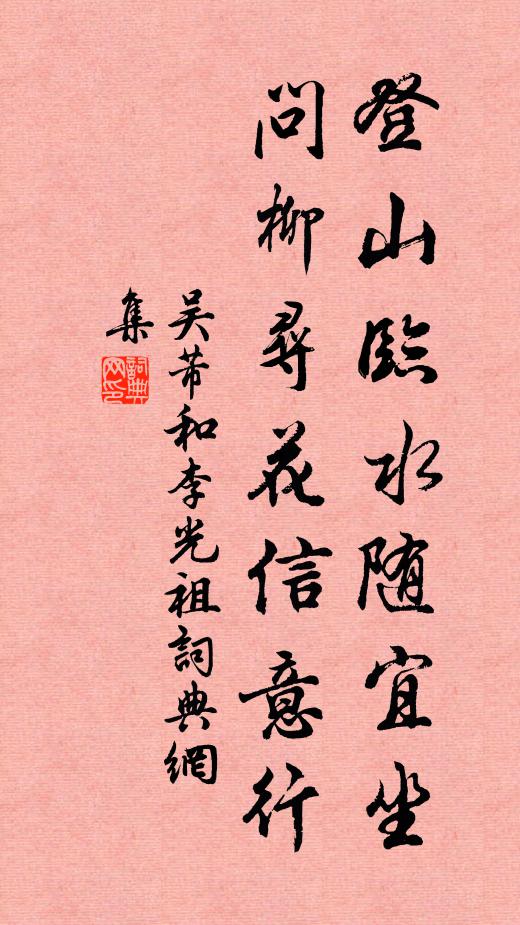 登山臨水随宜坐
問柳尋花信意行
吴芾和李光祖詞典網
集
詞典网印